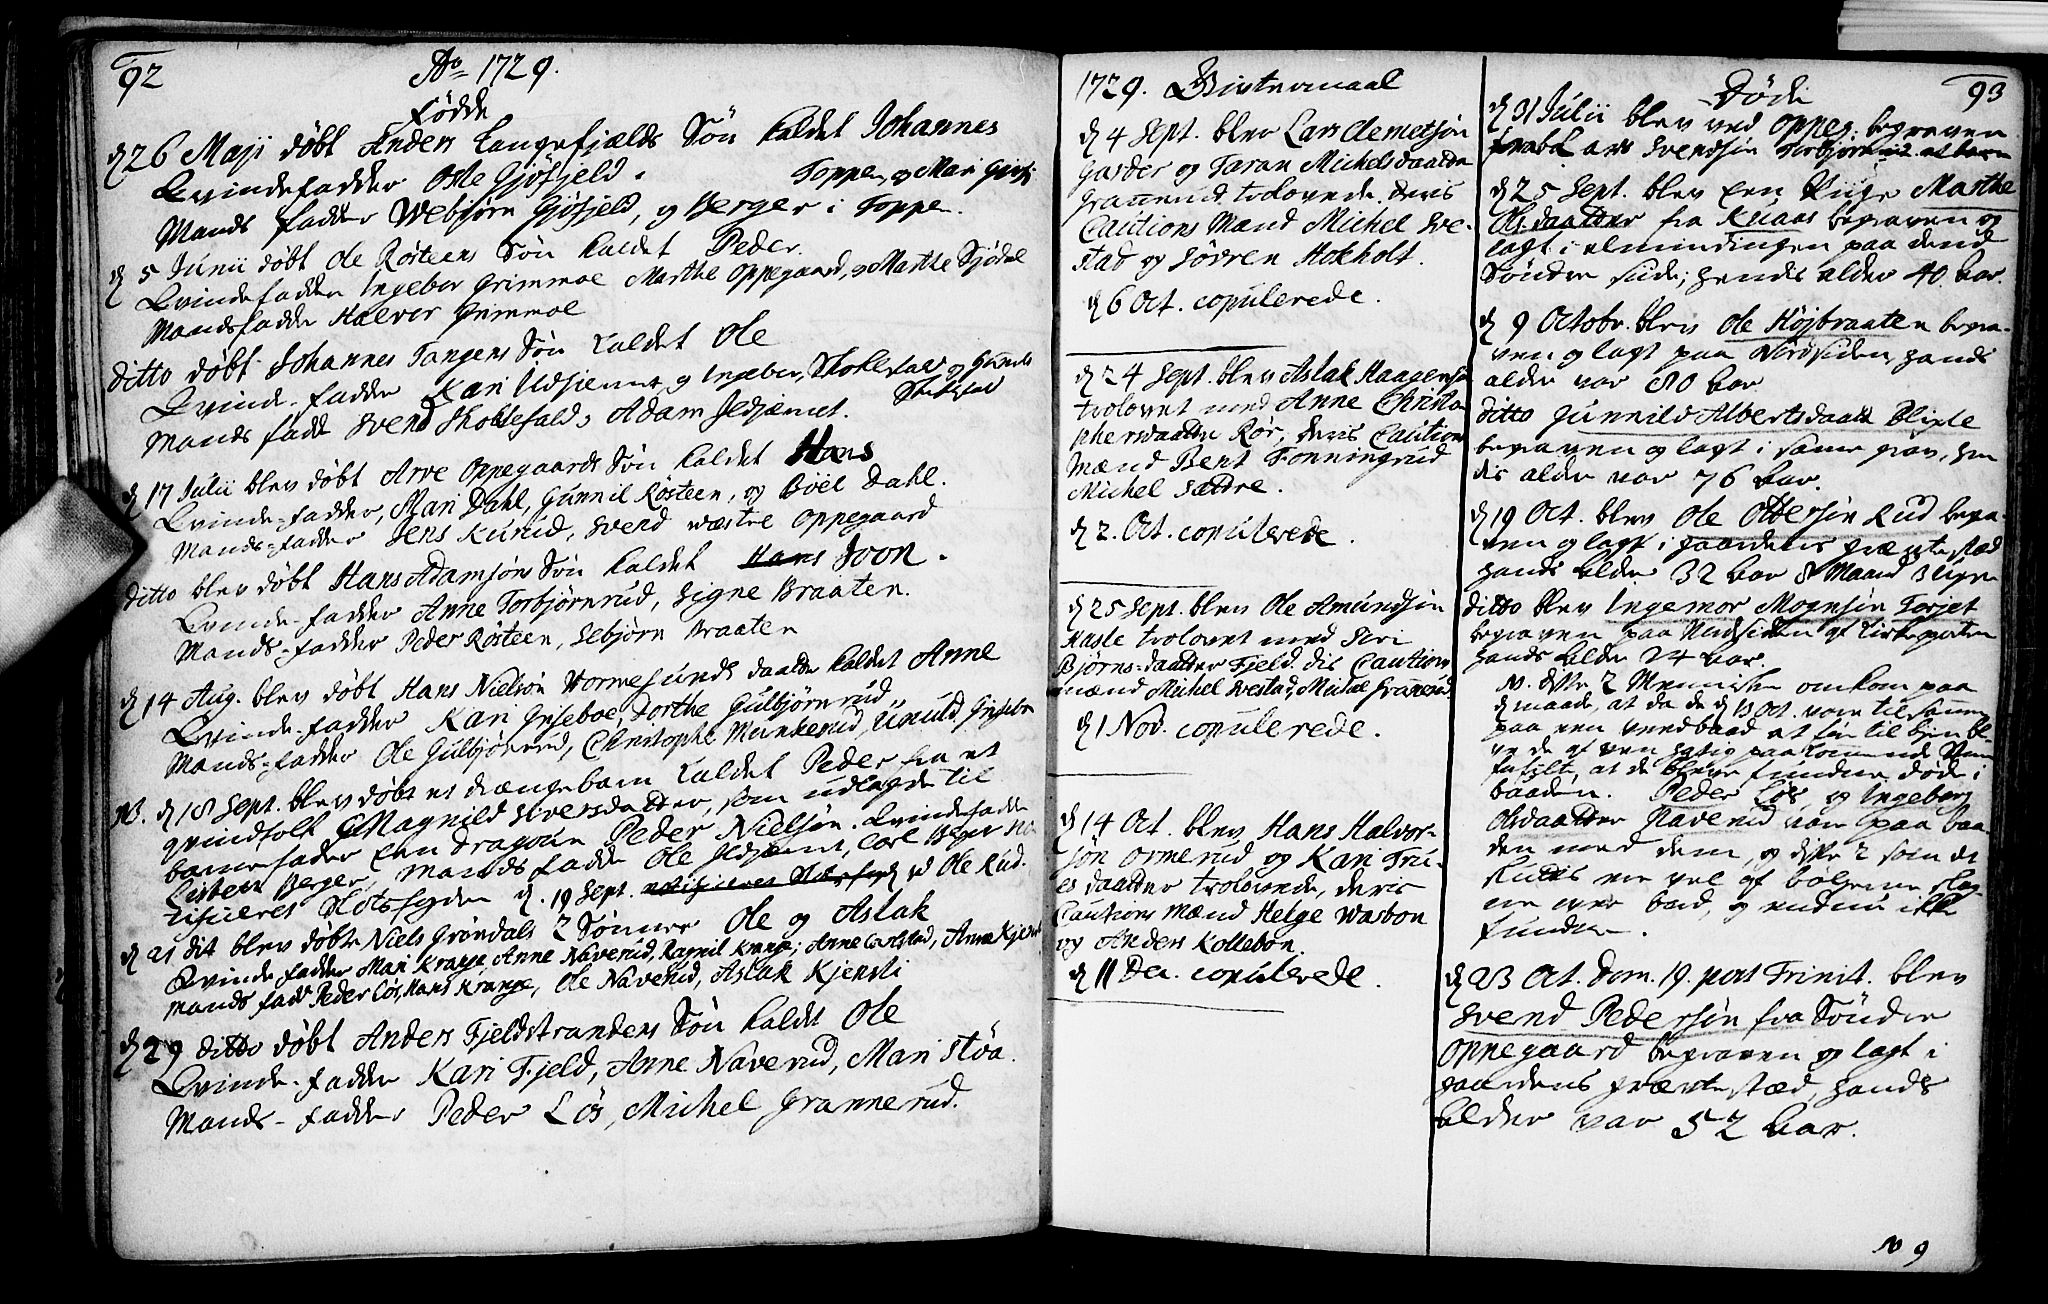 92
Ao 1729.
Fødde
d 26 Maji døbt Anders Langefjelds Søn kaldet Johannes
Qvindefadder Oste Gjøfjeld. Toppe, og Mari
Mands fadder Webjørn Gjøfjeld, og Berger i Toppe.
d 5 Junii døbt Ole Røsteens Søn kaldet Peder.
Qvindefadder Ingebor Grimmoe Marthe Oppegaard, og Marthe Sjødal
Mandsfadder Halvor Grimmoe
Ditto døbt Johannes Tangens Søn kaldet Ole
Qvinde-fadder Kari Ildjernet og Ingebor Skoklefald og
Mands fadd Svend Skoklefald, Adam Ildjernet.
d 17 Julii blev døbt Arve Oppegaards Søn kaldet Hans
Qvinde-fadder, Mari Dahl, Gunnil Røsteen, og Boel Dahl.
Mands-fadder Jens Kurud, Svend wæstre Oppegaard
Ditto blev døbt Hans Adamsøns Søn kaldet Hans Joon.
Qvinde-fadder Anne Torbjørnrud, Signe Braaten.
Mands-fadder Peder Røsteen, Sebjørn Braaten
d 14 Aug. blev døbt Hans Nielsøn Hornesunds daatter kaldet Anne
Qvinde-fadder Kari Gyseboe, Dorthe Gulbjørnrud
Mands-fadder Ole Gulbjørnrud, Christopher Munkerud,
NB. d 18 Sept. blev døbt et drængebarn kaldet Peder fra et
qvindfolk Magnild Siversdatter, som udlagde til
barnefader een dragoun Peder Nielsøn. Qvindefadder
Lisbeth Berger, Mands fadder Ole Ildjernet, Carl Berger No-
tificeret Slotsfogden d. 19 Sept. ved Ole Rud.
d 21 dit blev døbte Niels Grøndals 2 Sønner Ole og Aslak
Qvinde-fadder Mari Krange, Anne Naverud, Ragnil Krange, Anne Carlstad, Anne
Mands fadd Peder Løs, Hans Krange, Ole Naverud, Aslak Kjensli
d 29 ditto døbt Anders Fjeldstrandens Søn kaldet Ole
Qvinde-fadder Kari Fjeld, Anne Naverud, Mari Støa.
Mands-fadder Peder Løs, Michel Grannerud.
1729. Giftermaal
d 4 Sept. blev Lars Clemetsøn
Garder og Taran Michelsdaatter
Grannerud trolovede, deris
Cautions Mænd Michel Sve-
stad og Sørren Hokholt.
d 6 Oct. copulerede.
d 24 Sept. blev Aslak Haagensøn
trolovet med Anne Christo-
phersdaatter Rør, deris Cautions
Mænd Bent Fonningrud
Michel Sætdre.
d 2. Oct. copulerede.
d 25 Sept. blev Ole Amundsøn
Hasle trolovet med Siri
Bjørns-daatter Fjeld. dis Cautions
mænd Michel Svestad, Michel Grannerud
d 1 Nov. copulerede.
d 14 Oct. blev Hans Halvor-
søn Ormerud og Kari Tru-
elsdaatter trolovede, deris
Cautions Mænd Helge Warbon
og Anders Kollebon.
d 11 Dec. copulerede.
Døde 93
d 31 Julii blev ved Oppeg: begraven
Svendsøn
d 25 Sept. blev een Piige Marthe
Olsdaatter fra Knaas begraven og
lagt i almindingen paa dend
Søndre side; hendis alder 40 Aar.
d 9 Octobr. blev Ole Højbraaten begra-
ven og lagt paa Nordsiden, hands
alder var 80 Aar
Ditto Gunnild Albertsdaatt Blixle
begraven og lagt i samme grav, hen-
dis alder var 76 Aar.
d 19 Oct. blev Ole Ottersøn Rud begra-
ven og lagt i gaardens frænkestæd
hands Alder 32 Aar 8 Maand 3 Uger
Ditto blev Ingemor Mogensøn Torjet
begraven paa Nordsiden af Kirkeporten
hands Alder 24 Aar.
NB. disse 2 Mennisker omkom paa
d maade, at da de d 13 Oct. vare tilsammen
paa een vendbaad at føre til byen ble-
ve de af een hastig paakommende Storm
at de bleve fundne døde i
baaden. Peder Løs, og Ingeborg
Olsdaatter Naverud vare paa baa-
den med dem, og disse 2 som at
Studis ere vel af bølgerne slag-
ne over bord, og endnu ikke
fundne.
d 23 Oct. Dom. 19. post Trinit. blev
Svend Pedersøn fra Søndre
Oppegaard begraven og lagt i
gaardens frænkestæd, hands
Alder var 52 Aar.
N 9